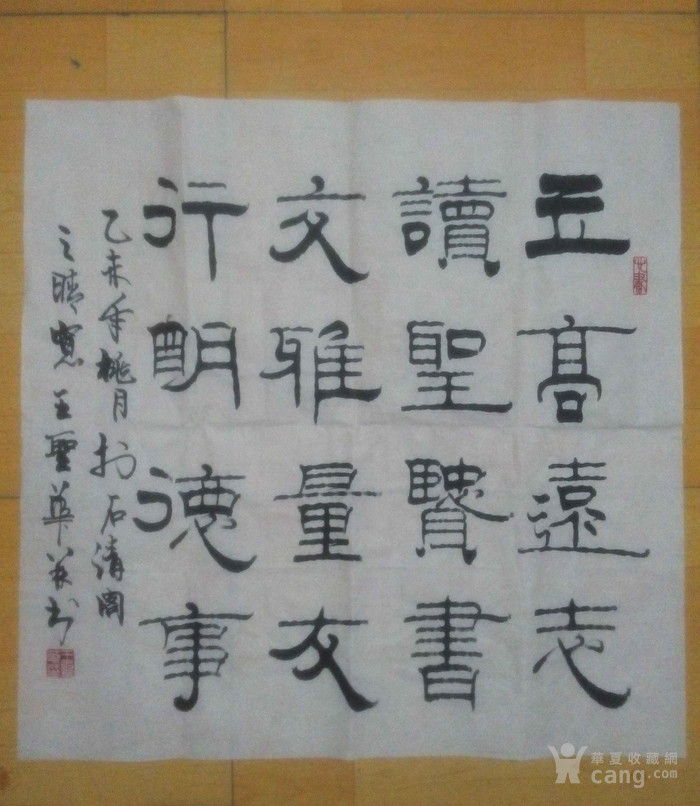 立高遠志
讀聖賢書
交雅量友
行明德事
乙未年桃月於石清閣
之晴窓王聖華書
華夏收藏網
cang.com